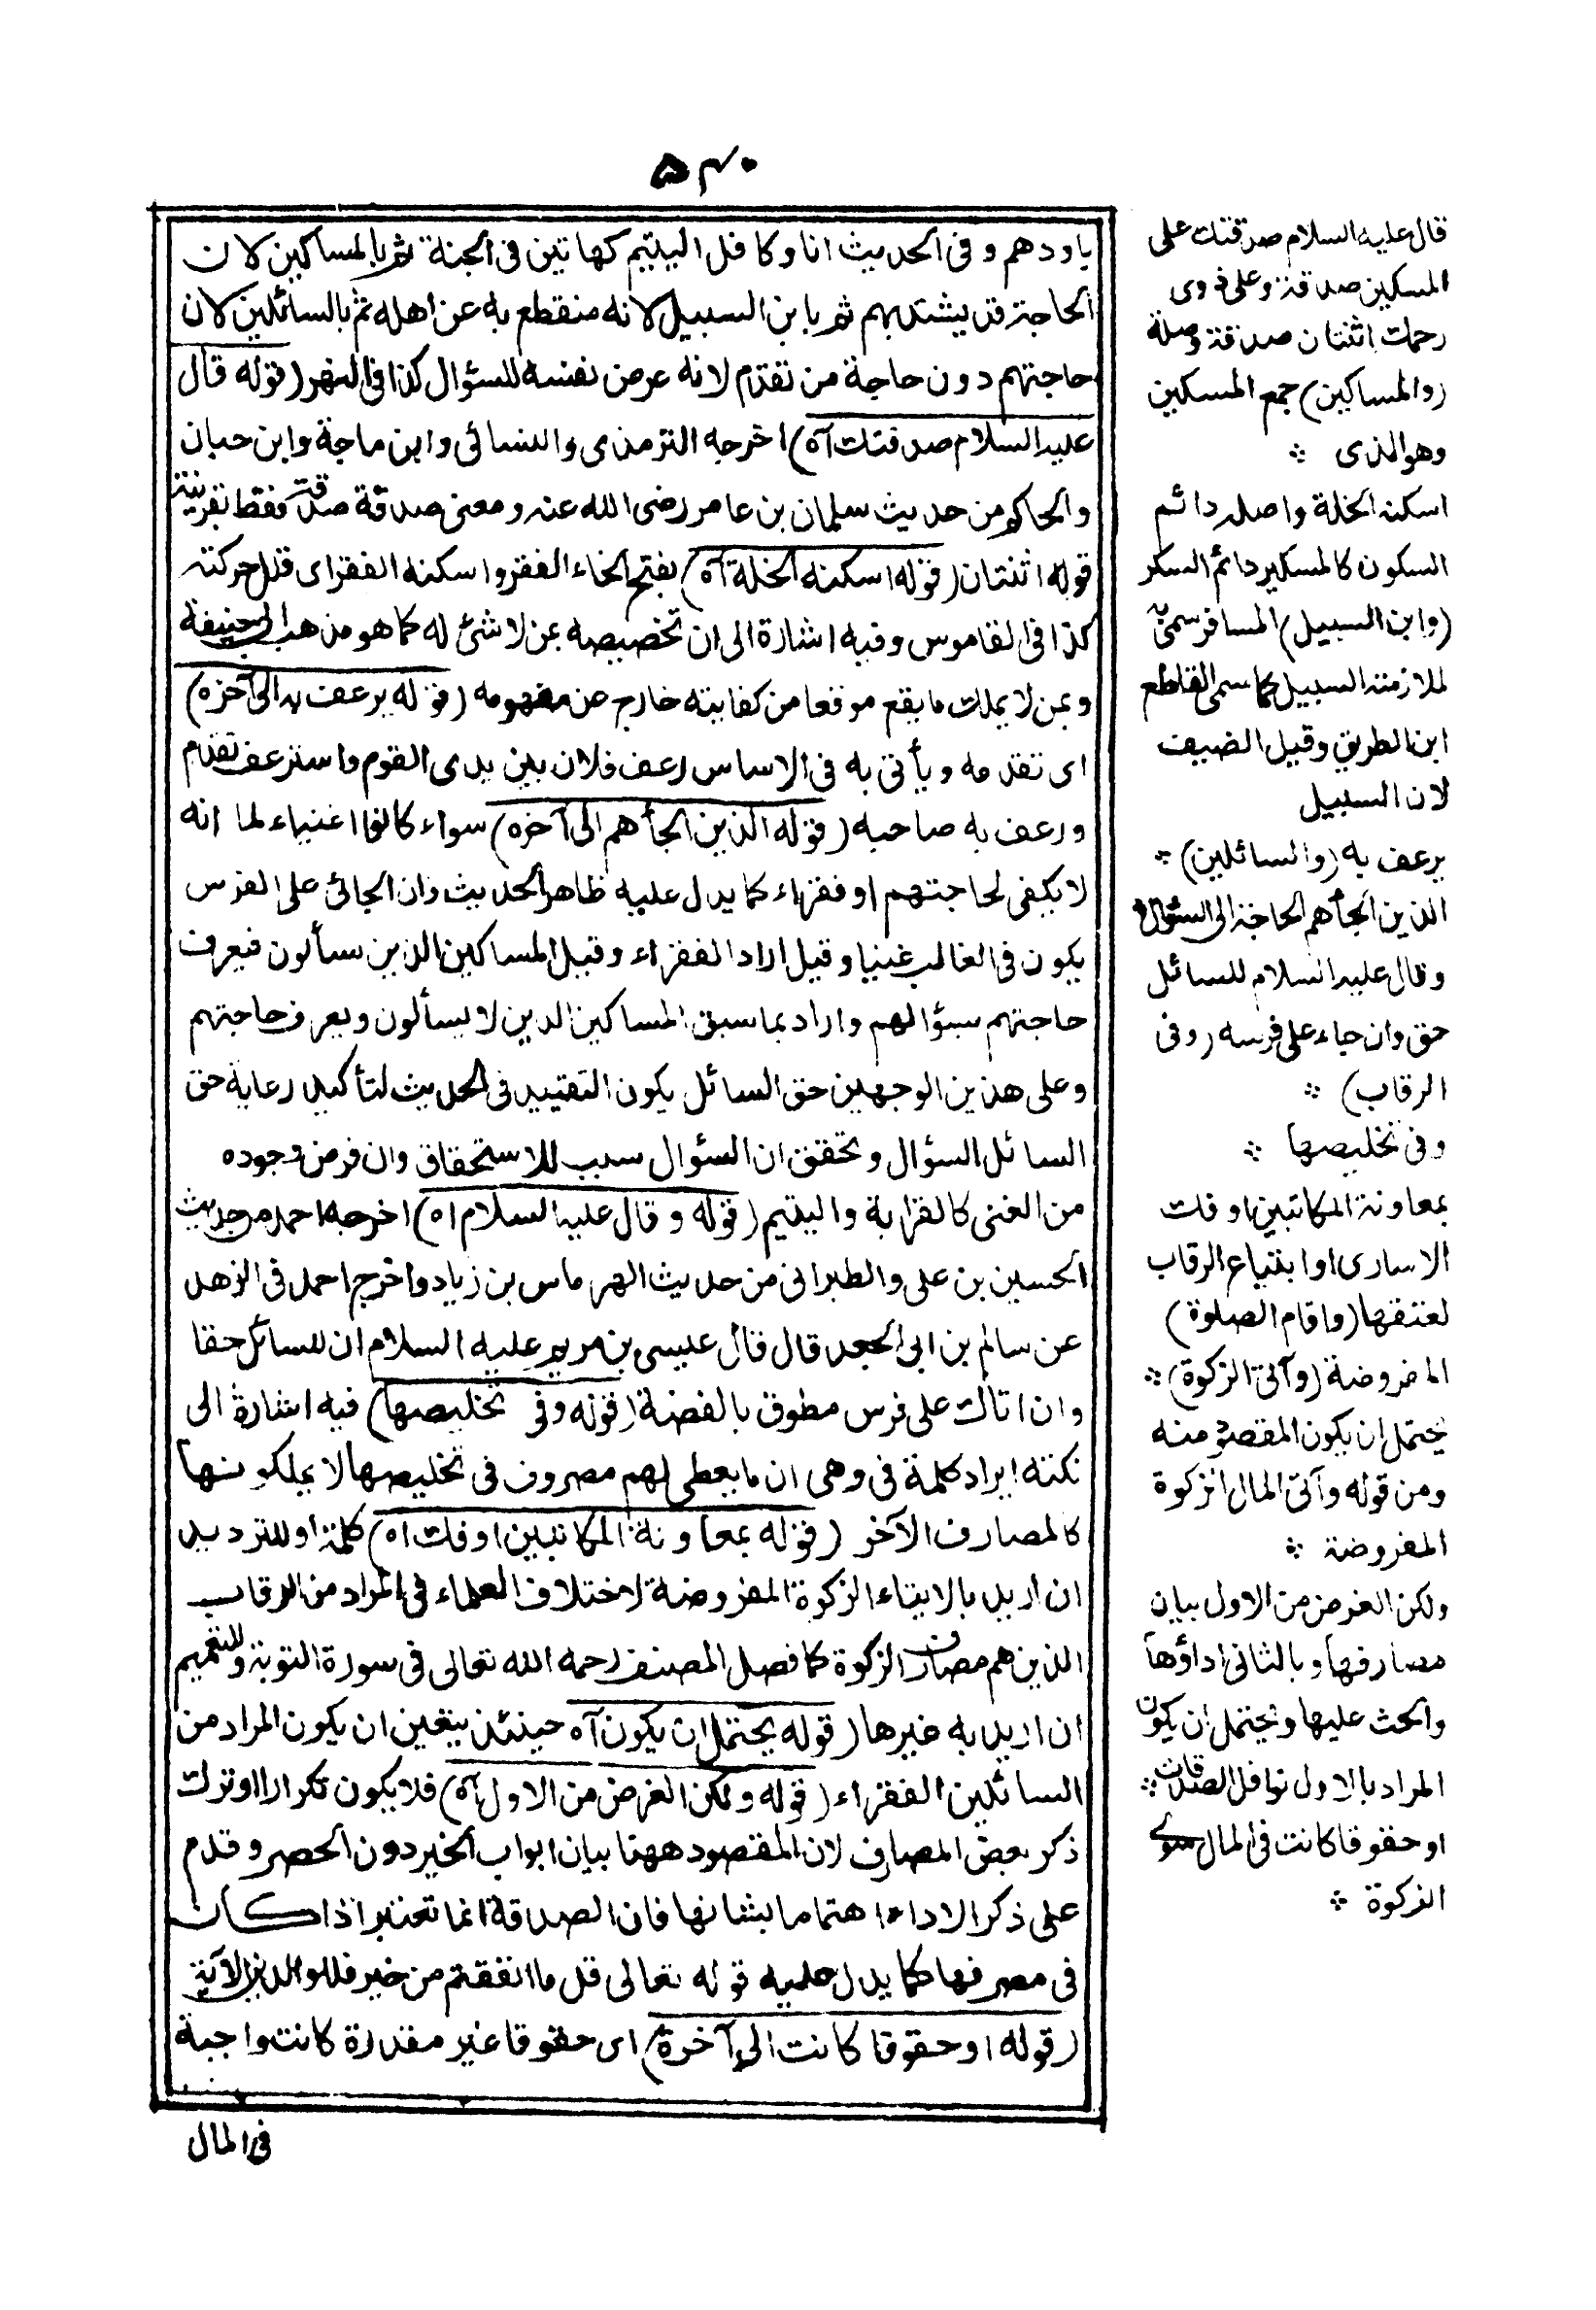 ۵۴۰
ياودهم وفى الحديث انا وكافل اليتيم كهاتين فى الجنة ثم بالمساكين لان
الحاجة قد يشتد بهم ثم بابن السبيل لانه منقطع به عن اهله ثم بالسائلين لان
حاجتهم دون حاجة من تقدم لانه عرض نفسه للسؤال كذا فى النهر (قوله قال
عليه السلام صدقتك آه) اخرجه الترمذى والنسائى وابن ماجة وابن حبان
والحاكم من حديث سلمان بن عامر رضى الله عنه ومعنى صدقة صدقة فقط بقرينة
قوله اثنتان (قوله اسكنه الخلة آه) بفتح الخاء الفقر واسكنه الفقر اى قلل حركته
كذا فى القاموس وفيه اشارة الى ان تخصيصه بمن لا شئ له كما هو مذهب ابى حنيفة
وبمن لا يملك ما يقع موقعا من كفايته خارج عن مفهومه (قوله يرعف به الى آخره)
اى تقدمه ويأتى به فى الاساس رعف فلان بين يدى القوم واسترعف تقدم
ورعف به صاحبه (قوله الذين الجأهم الى آخره) سواء كانوا اغنياء لما انه
لا يكفى لحاجتهم او فقراء كما يدل عليه ظاهر الحديث وان الجائى على الفرس
يكون فى الغالب غنيا وقيل اراد الفقراء وقيل المساكين الذين سألون فيعرف
حاجتهم سؤالهم واراد بما سبق المساكين الذين لا يسألون ويعرف حاجتهم
وعلى هذين الوجهين حق السائل يكون التقييد فى الحديث لتأكيد رعاية حق
السائل السؤال وتحقق ان السئوال سبب للاستحقاق وان فرض وجوده
من الغنى كالقرابة واليتيم (قوله وقال عليه السلام اه) اخرجه احمد من حديث
الحسين بن على والطبرانى من حديث الهرماس بن زياد واخرج احمد فى الزهد
عن سالم بن ابى الجعد قال قال عيسى بن مريم عليه السلام ان للسائل حقا
وان اتاك على فرس مطوق بالفضة (قوله وفى تخليصها) فيه اشارة الى
نكتة ايراد كلمة فى وهى ان ما يعطى لهم مصروف فى تخليصها لا يملكونها
كالمصارف الآخر (قوله بمعاونة المكاتبين او فك اه) كلمة او للترديد
ان اريد بالايتاء الزكوة المفروضة لاختلاف العلماء فى المراد من الرقاب
الذين هم مصارف الزكوة كما فصل المصنف رحمه الله تعالى فى سورة التوبة وللتعميم
ان اريد به غيرها (قوله يحتمل ان يكون آه حينئذ يتعين ان يكون المراد من
السائلين الفقراء (قوله ولكن الغرض من الاول آه) فلا يكون تكرارا او ترك
ذكر بعض المصارف لان المقصود ههنا بيان ابواب الخير دون الحصر وقدم
على ذكر الاداء اهتماما بشانها فان الصدقة انما تعتبر اذا كان
فى مصرفها كما يدل عليه قوله تعالى قل ما انفقتم من خير فللوالدين الآية
(قوله او حقوقا كانت الى آخرة) اى حقوقا غير مقدرة كانت واجبة
فى المال
قال عليه السلام صدقتك على
المسكين صدقة وعلى ذوى
رحمك اثنتان صدقة وصلة
(والمساكين) جمع المسكين
وهو الذى
اسكنه الخلة واصله دائم
السكون كالمسكير دائم السكر
(وابن السبيل) المسافر سمى به
لملازمته السبيل كما سمى القاطع
ابن الطريق وقيل الضيف
لان السبيل
يرعف به (والسائلين)
الذين الجأهم الحاجة الى السئوال
وقال عليه السلام للسائل
حق وان جاء على فرسه (وفى
الرقاب)
وفى تخليصها
بمعاونة المكاتبين او فك
الاسارى او ابتياع الرقاب
لعتقها (واقام الصلوة)
المفروضة (وآتى الزكوة)
يحتمل ان يكون المقصود منه
ومن قوله وآتى المال الزكوة
المفروضة
ولكن الغرض من الاول بيان
مصارفها وبالثانى اداؤها
والحث عليها ويحتمل ان يكون
المراد بالاول نوافل الصدقات
او حقوقا كانت فى المال سوى
الزكوة